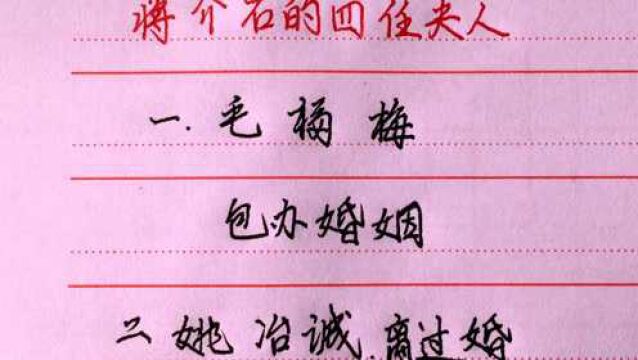 蒋介石的四任夫人
一.毛福梅
包办婚姻
二姚冶诚.离过婚